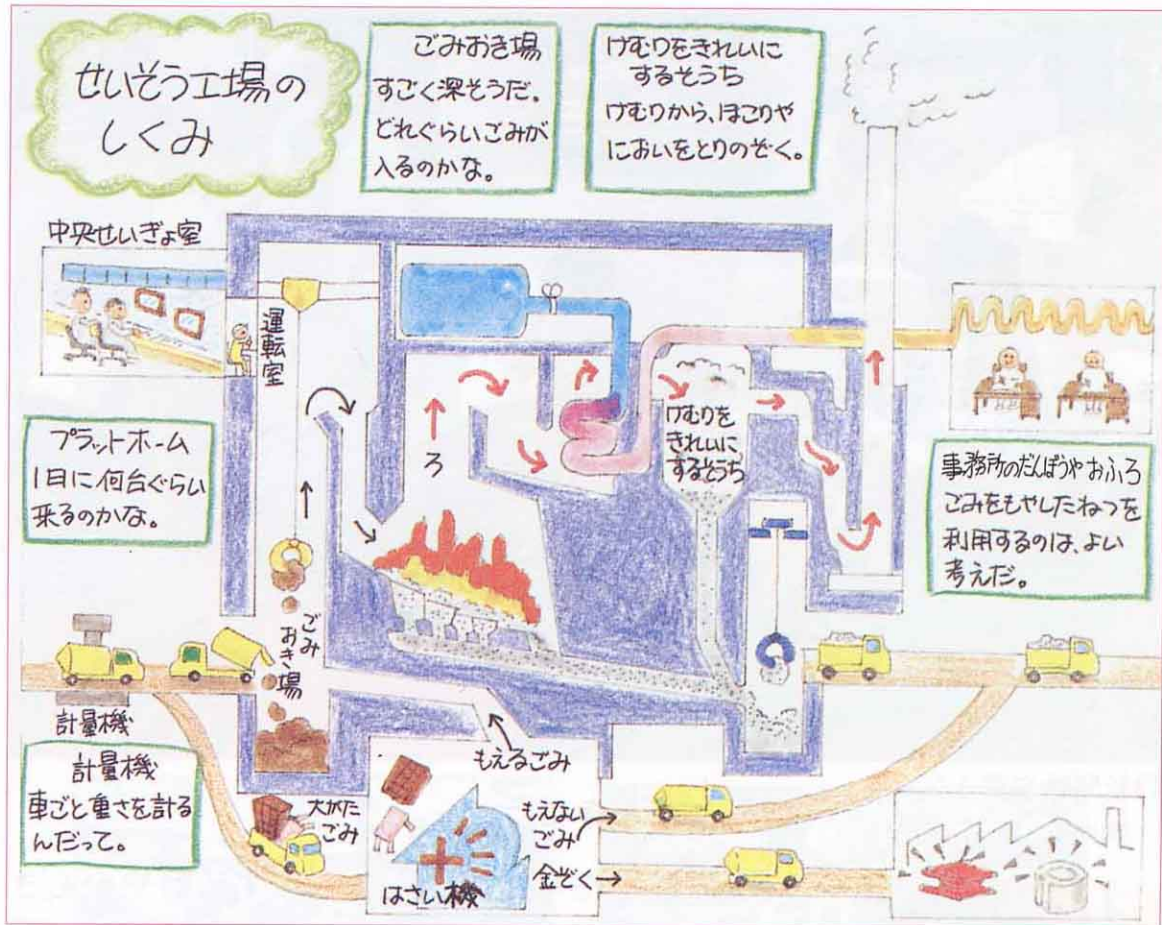 せいそう工場の
しくみ
ごみおき場
すごく深そうだ。
どれぐらいごみが
入るのかな。
けむりをきれいに
するそうち
けむりから、ほこりや
においをとりのぞく。
中央せいぎょ室
運転室
プラットホーム
1日に何台ぐらい
来るのかな。
ろ
けむりを
きれいに
するそうち
事務所のだんぼうやおふろ
ごみをもやしたねつを
利用するのは、よい
考えだ。
ごみ
おき場
計量機
計量機
車ごと重さを計る
んだって。
大がた
ごみ
もえるごみ
はさい機
もえない
ごみ
金ぞく